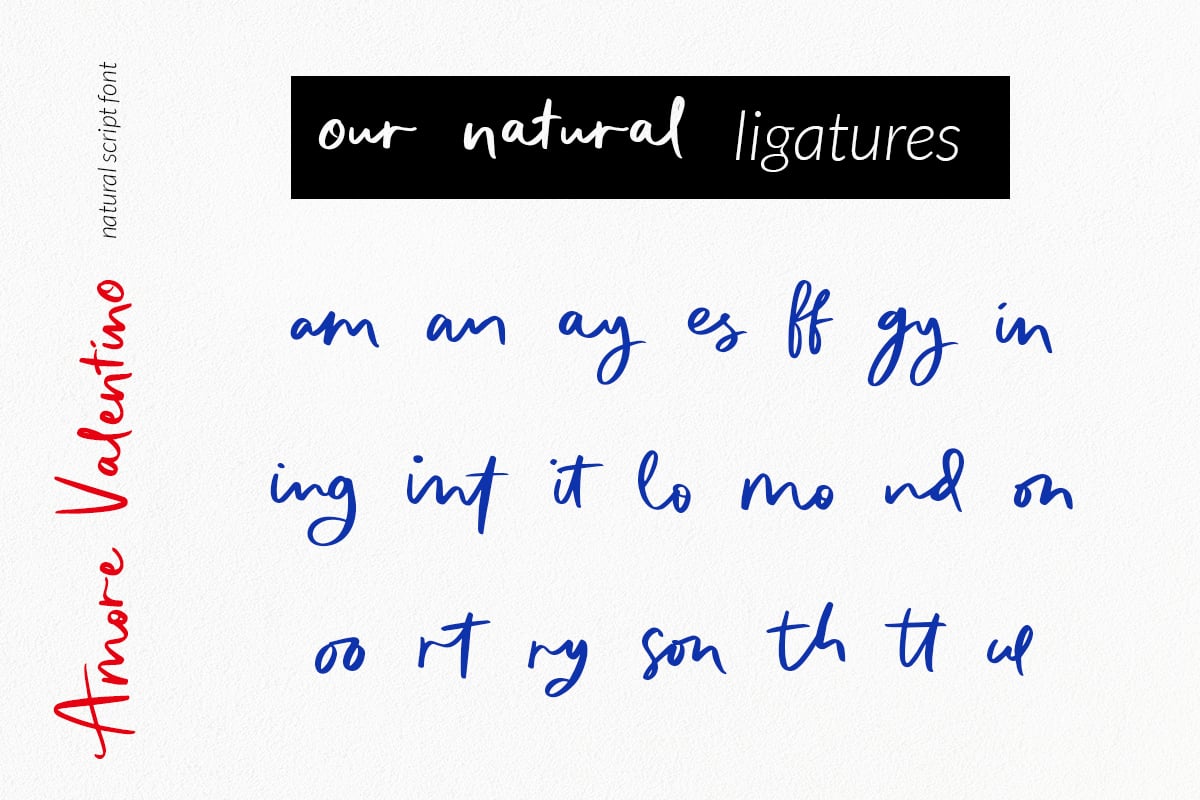 our natural ligatures
am an ay es ff gy in
ing int it lo mo nd on
oo rt ry son th tt ul
Amore Valentino natural script font